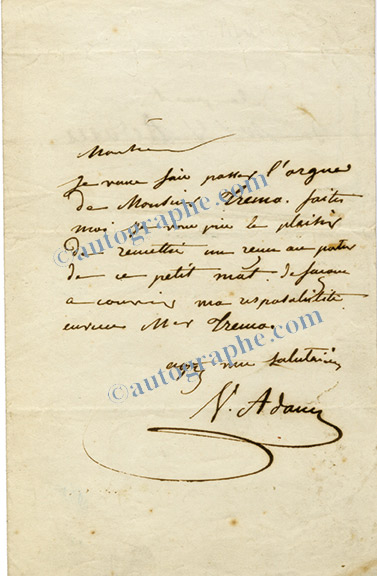 Monsieur
Je vous fais passer l'orgue
de Monsieur Trema. faites
moi je vous prie le plaisir
de remettre un reçu au porter
de ce petit mot. de façon
a couvrir ma responsabilité
envers Mer Trema.
agréz mes salutation
V. Adam
©autographe.com
©autographe.com
©autographe.com